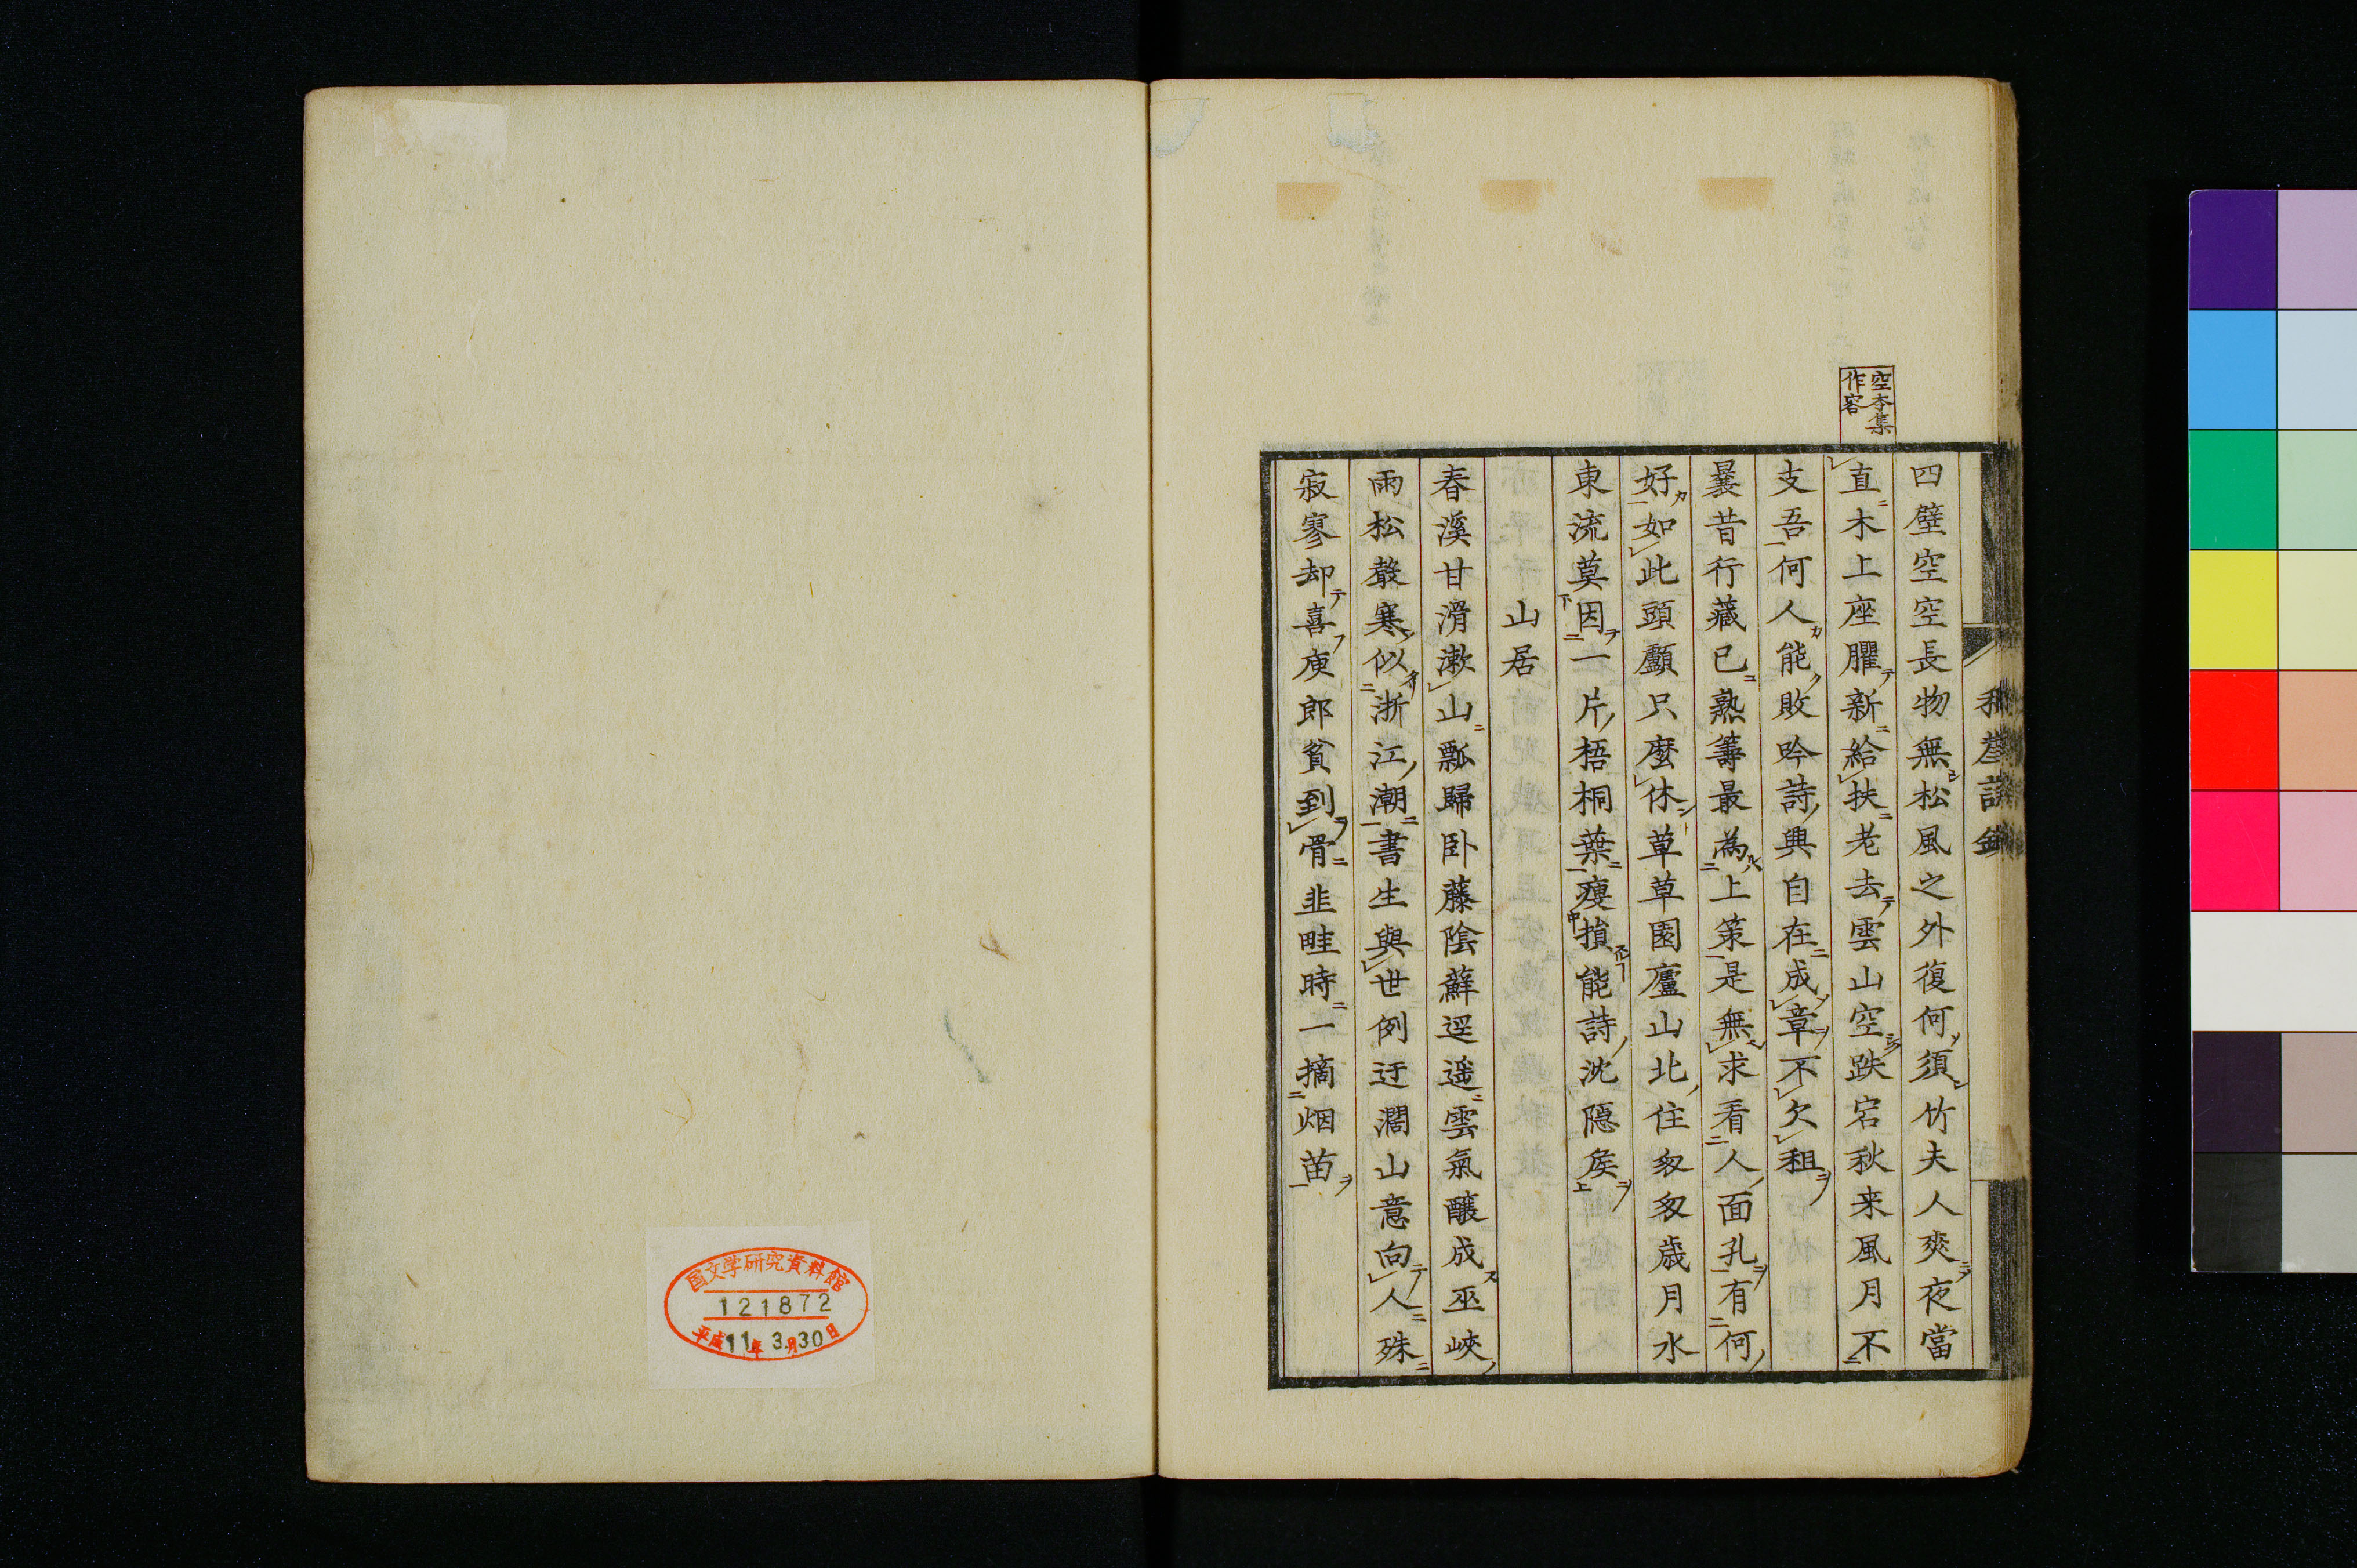 空本集
作容
四壁空空長物無松風之外復何須竹夫人爽夜當
直木上座臞新給扶老去雲山空跌宕秋来風月不
支吾何人能敗吟詩興自在成章不欠租
曩昔行藏已熟籌最為上策是無求看人面孔有何
好如此頭顱只麼休草草園廬山北住匆匆歳月水
東流莫因一片梧桐葉痩損能詩沈隠矦
山居
春溪甘滑漱山瓢歸卧藤陰蘇逕遥雲氣釀成巫峽
雨松聲寒似浙江潮書生與世例迂濶山意向人殊
寂寥却喜庾郎貧到骨韭畦時一摘烟苗
国文学研究資料館
121872
平成11年3月30日